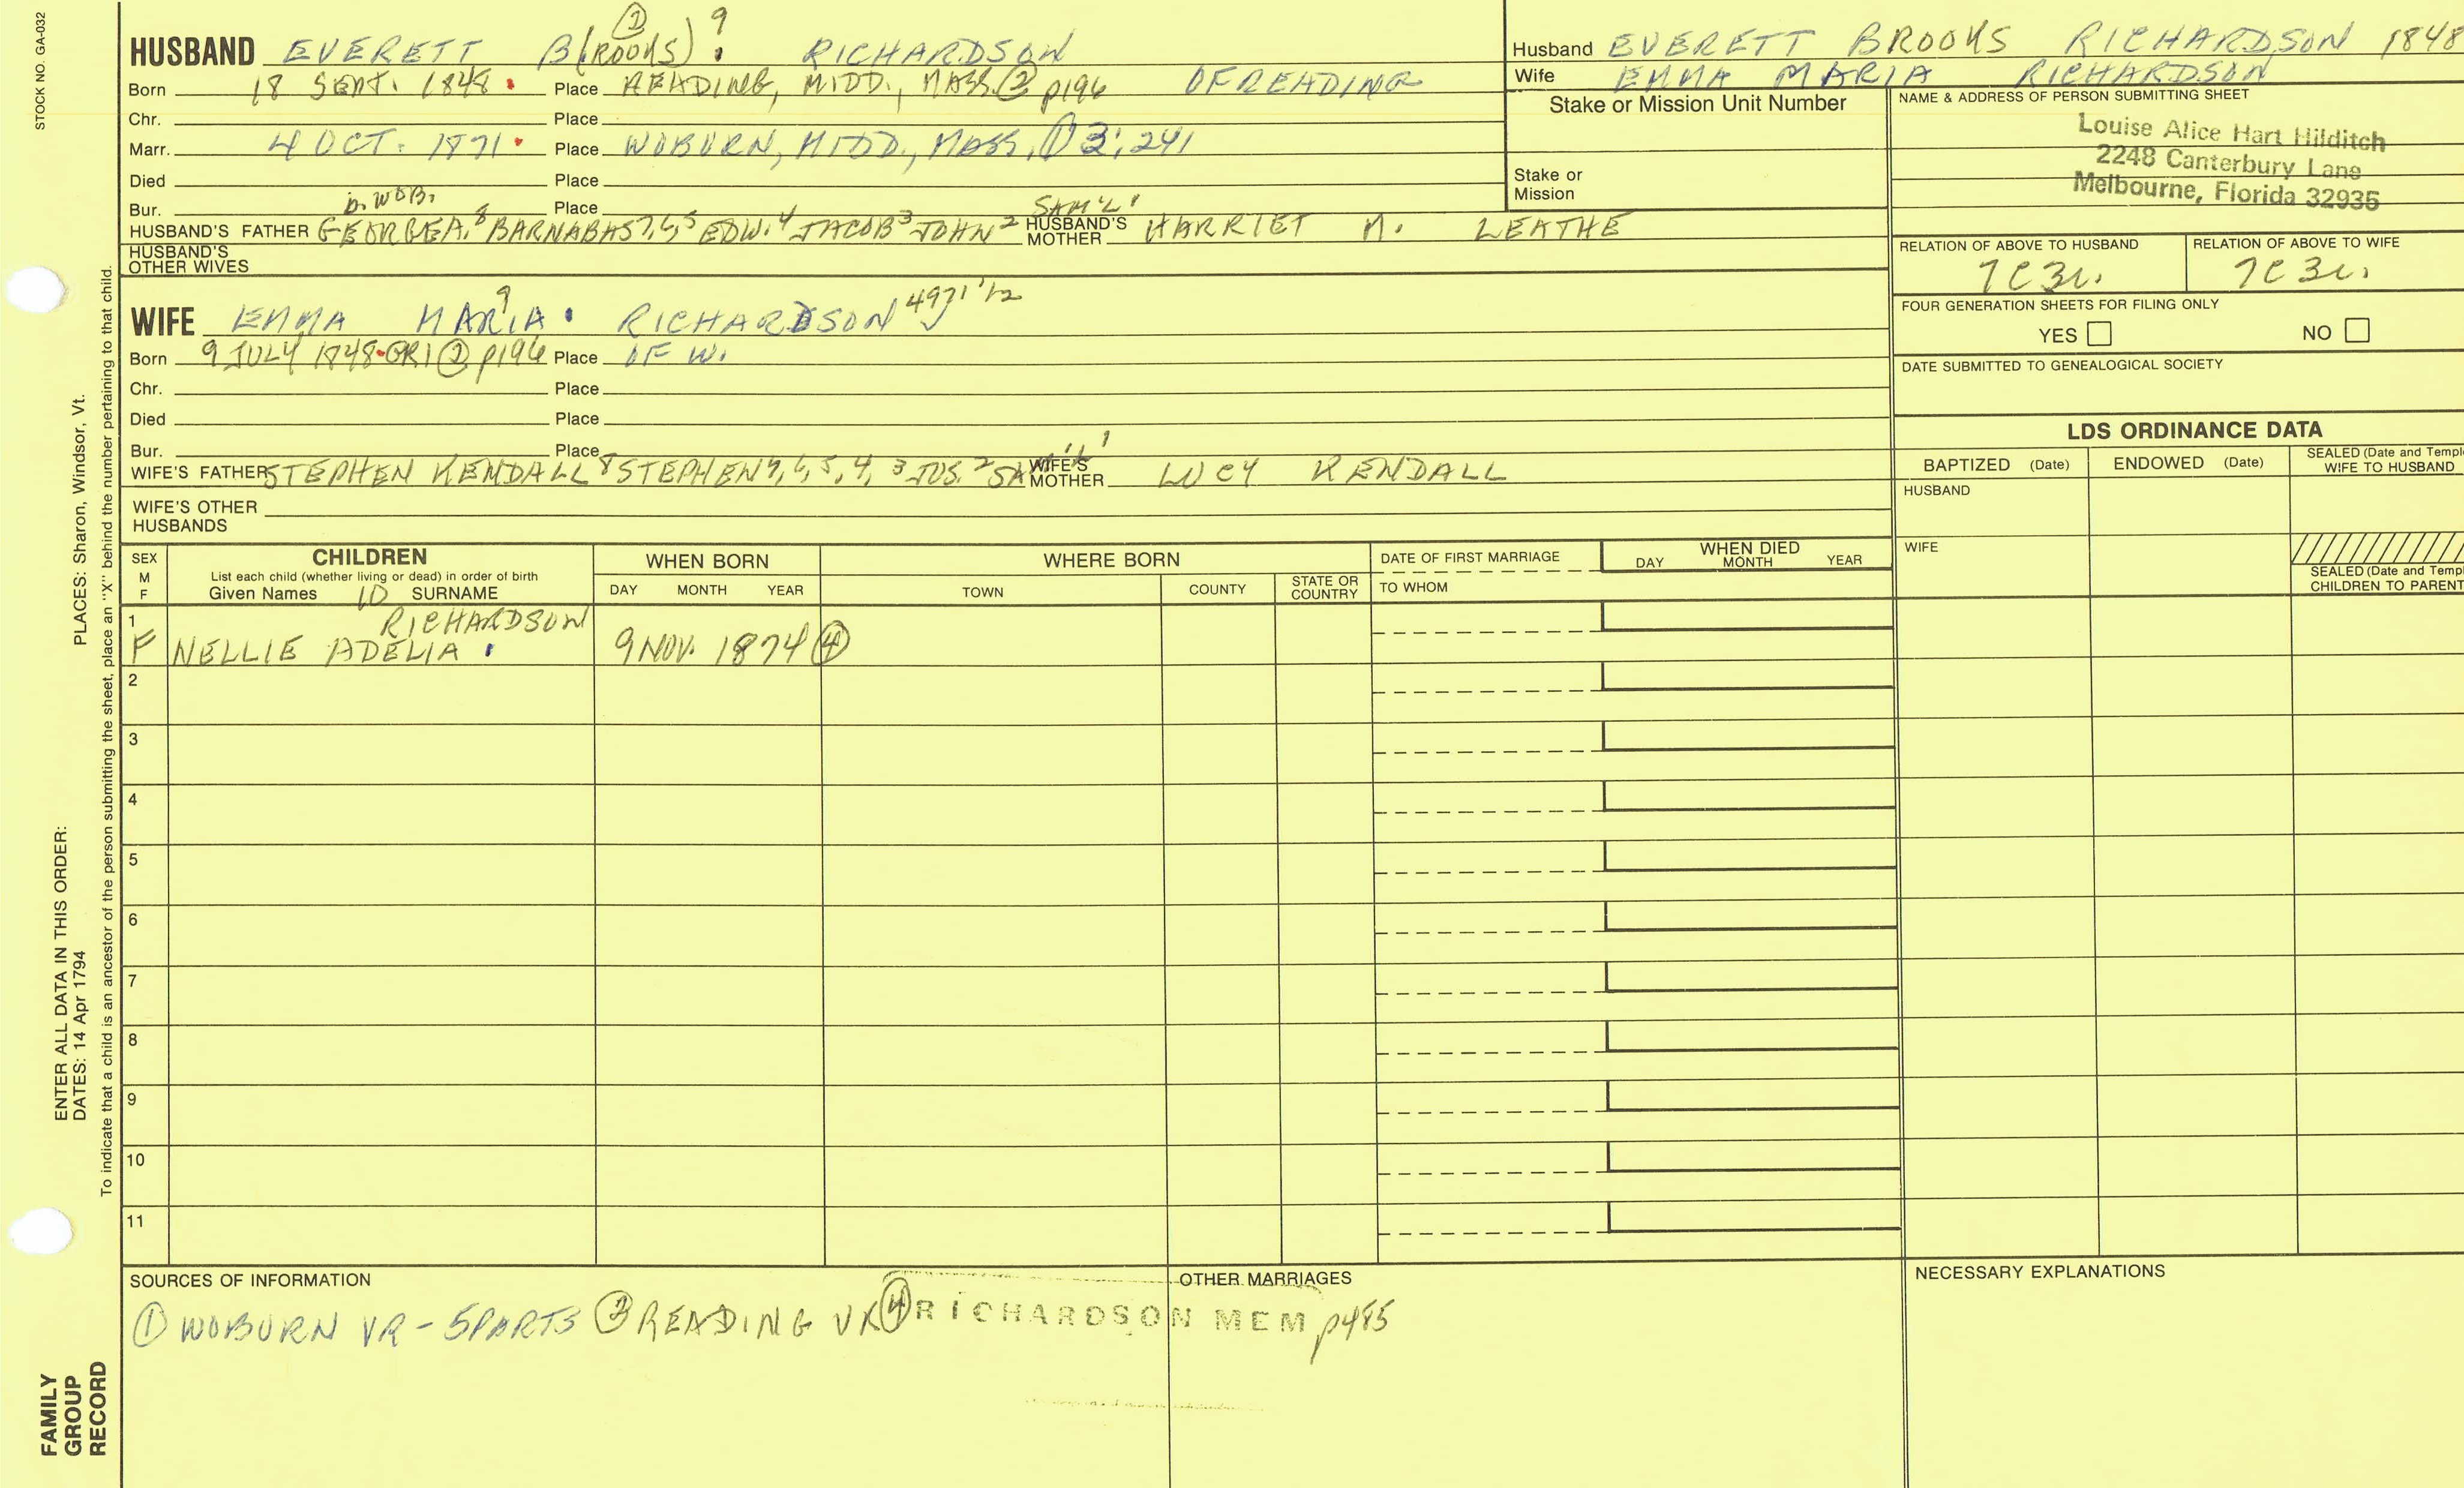 STOCK NO. GA-032
HUSBAND EVERETT B(ROOKS) ② 9 RICHARDSON
Born 18 SEPT. 1848 Place READING, MIDD., MASS. ② p196 OF READING
Chr. Place
Marr. 4 OCT. 1871 Place WOBURN, MIDD., MASS. ① 3:241
Died Place
Bur. b. WOB. Place
HUSBAND'S FATHER GEORGE A.8 BARNABAS 7,6,5 EDW.4 JACOB3 JOHN2 SAM'L1 HUSBAND'S MOTHER HARRIET M. LEATHE
HUSBAND'S OTHER WIVES
WIFE EMMA MARIA 9 RICHARDSON 4971 1/2
Born 9 JULY 1848 GR1 ② p196 Place OF W.
Chr. Place
Died Place
Bur. Place
WIFE'S FATHER STEPHEN KENDALL 8 STEPHEN 7,6,5,4,3 JOS.2 SAM'L1 WIFE'S MOTHER LUCY KENDALL
WIFE'S OTHER HUSBANDS
Husband EVERETT BROOKS RICHARDSON 1848
Wife EMMA MARIA RICHARDSON
Stake or Mission Unit Number
Stake or Mission
NAME & ADDRESS OF PERSON SUBMITTING SHEET
Louise Alice Hart Hilditch
2248 Canterbury Lane
Melbourne, Florida 32935
RELATION OF ABOVE TO HUSBAND RELATION OF ABOVE TO WIFE
7C3r. 7C3r.
FOUR GENERATION SHEETS FOR FILING ONLY
YES NO
DATE SUBMITTED TO GENEALOGICAL SOCIETY
LDS ORDINANCE DATA
BAPTIZED (Date) ENDOWED (Date) SEALED (Date and Templ
WIFE TO HUSBAND
HUSBAND
WIFE
SEALED (Date and Templ
CHILDREN TO PARENT
SEX M F
CHILDREN
List each child (whether living or dead) in order of birth
Given Names 10 SURNAME
WHEN BORN
DAY MONTH YEAR
WHERE BORN
TOWN COUNTY STATE OR COUNTRY
DATE OF FIRST MARRIAGE
TO WHOM
WHEN DIED
DAY MONTH YEAR
1 RICHARDSON
F NELLIE ADELIA 9 NOV. 1874 ④
2
3
4
5
6
7
8
9
10
11
SOURCES OF INFORMATION
① WOBURN VR - 5PARTS ② READING VR ④ RICHARDSON MEM p485
OTHER MARRIAGES
NECESSARY EXPLANATIONS
ENTER ALL DATA IN THIS ORDER:
DATES: 14 Apr 1794
PLACES: Sharon, Windsor, Vt.
To indicate that a child is an ancestor of the person submitting the sheet, place an "X" behind the number pertaining to that child.
FAMILY
GROUP
RECORD